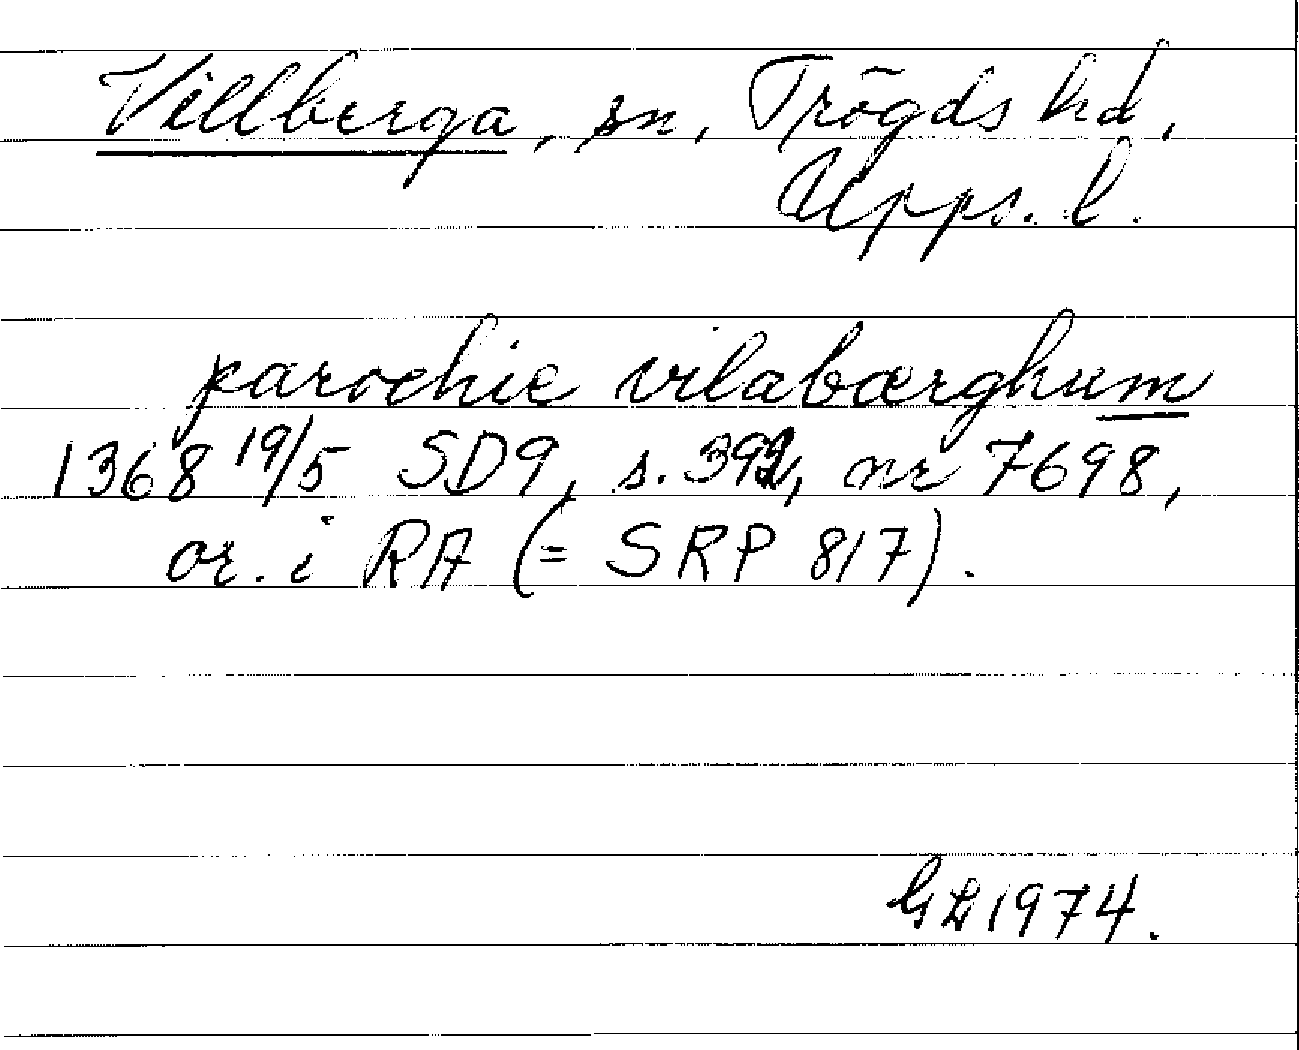 Villberga, sn, Trögds hd,
Upps. l.
parochie vilabærghum
1368 19/5 SD9, s. 392, nr 7698,
or. i RA (= SRP 817).
GL 1974.